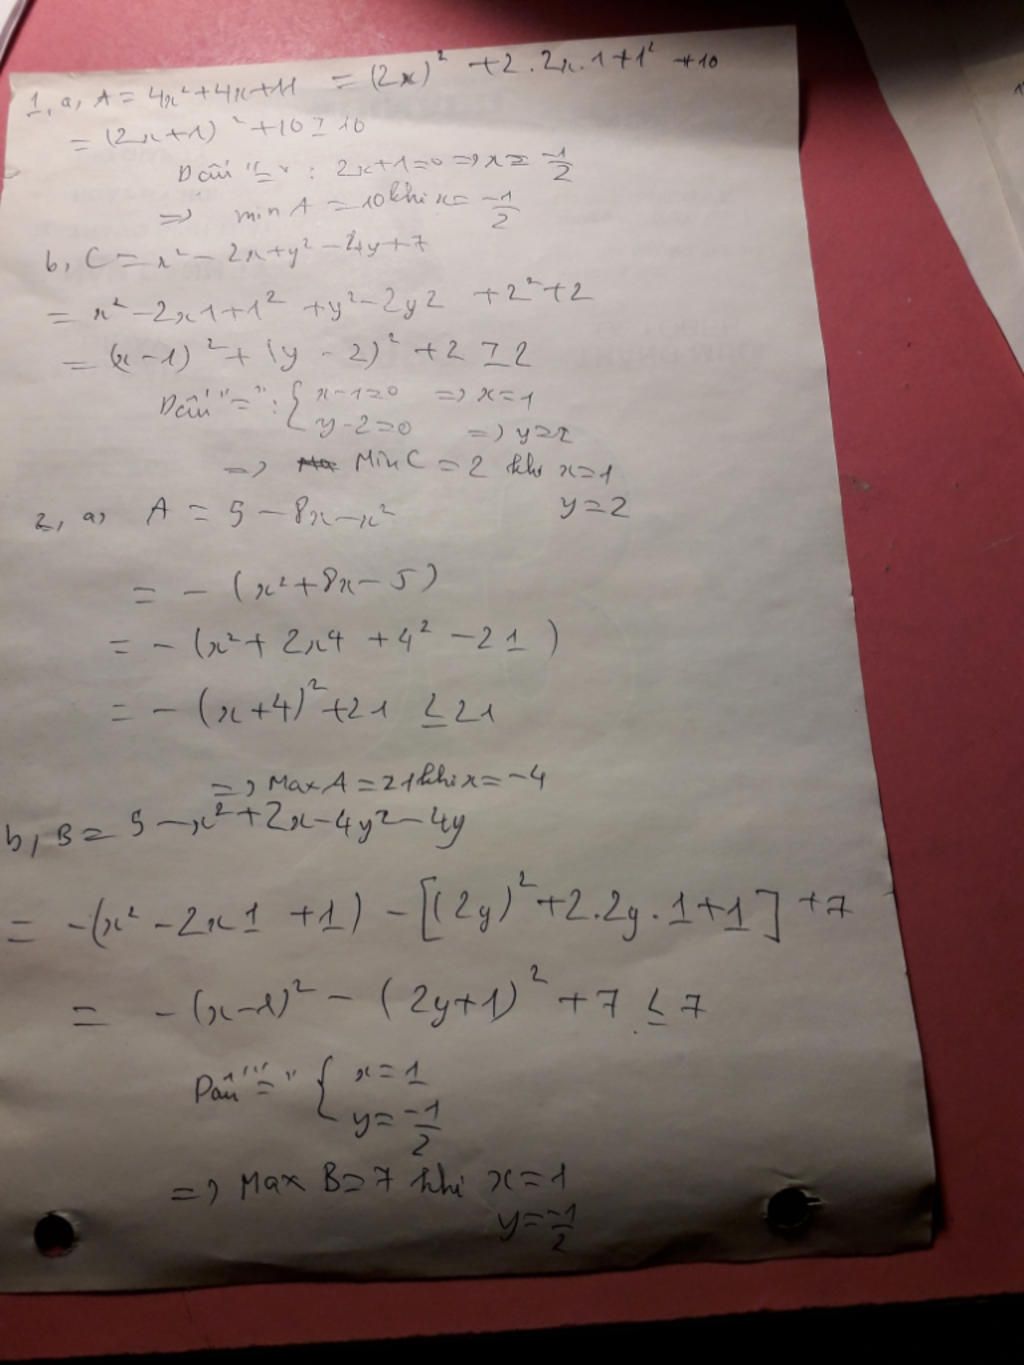 1, a, A = 4x² + 4x + 11 = (2x)² + 2.2x.1 + 1² + 10
= (2x+1)² + 10 ≥ 10
Dấu "=" : 2x+1=0 => x = -1/2
=> min A = 10 khi x = -1/2
b, C = x² - 2x + y² - 4y + 7
= x² - 2x1 + 1² + y² - 2y2 + 2² + 2
= (x-1)² + (y-2)² + 2 ≥ 2
Dấu "=" : { x-1=0 => x=1
y-2=0 => y=2
=> Min C = 2 khi x=1
y=2
2, a, A = 5 - 8x - x²
= - (x² + 8x - 5)
= - (x² + 2x4 + 4² - 21)
= - (x+4)² + 21 ≤ 21
=> Max A = 21 khi x = -4
b, B = 5 - x² + 2x - 4y² - 4y
= -(x² - 2x1 + 1) - [(2y)² + 2.2y.1 + 1] + 7
= -(x-1)² - (2y+1)² + 7 ≤ 7
Dấu "=" { x = 1
y = -1/2
=> Max B = 7 khi x = 1
y = -1/2